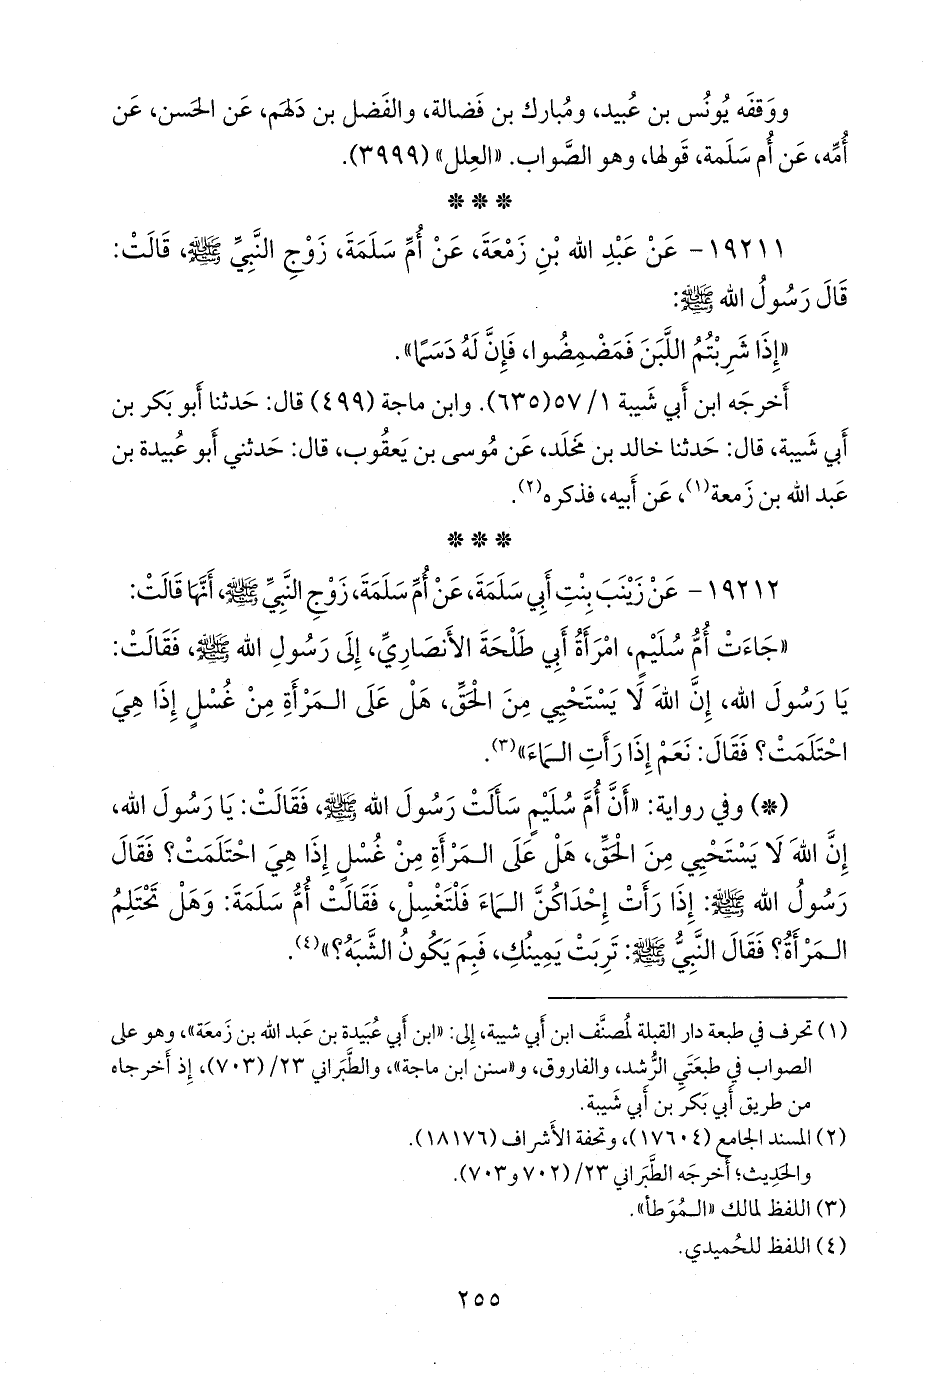 ووَقفَه يُونُس بن عُبيد، ومُبارك بن فَضالة، والفَضل بن دَلهَم، عَن الحَسن، عَن
أُمِّه، عَن أُم سَلَمة، قَولها، وهو الصَّواب. «العِلل» (٣٩٩٩).
* * *
١٩٢١١- عَنْ عَبْدِ الله بْنِ زَمْعَةَ، عَنْ أُمِّ سَلَمَةَ، زَوْجِ النَّبِيِّ ﷺ، قَالَتْ:
قَالَ رَسُولُ الله ﷺ:
«إِذَا شَرِبْتُمُ اللَّبَنَ فَمَضْمِضُوا، فَإِنَّ لَهُ دَسَمًا».
أَخرجَه ابن أَبي شَيبة ١/ ٥٧(٦٣٥). وابن ماجة (٤٩٩) قال: حَدثنا أَبو بَكر بن
أَبي شَيبة، قال: حَدثنا خالد بن مَخلَد، عَن مُوسى بن يَعقُوب، قال: حَدثني أَبو عُبيدة بن
عَبد الله بن زَمعة(١)، عَن أَبيه، فذكره(٢).
* * *
١٩٢١٢- عَنْ زَيْنَبَ بِنْتِ أَبِي سَلَمَةَ، عَنْ أُمِّ سَلَمَةَ، زَوْجِ النَّبِيِّ ﷺ، أَنَّهَا قَالَتْ:
«جَاءَتْ أُمُّ سُلَيْمٍ، امْرَأَةُ أَبِي طَلْحَةَ الأَنصَارِيِّ، إِلَى رَسُولِ الله ﷺ، فَقَالَتْ:
يَا رَسُولَ الله، إِنَّ اللهَ لَا يَسْتَحْيِي مِنَ الْحَقِّ، هَلْ عَلَى الْمَرْأَةِ مِنْ غُسْلٍ إِذَا هِيَ
احْتَلَمَتْ؟ فَقَالَ: نَعَمْ إِذَا رَأَتِ الْمَاءَ»(٣).
(*) وفي رواية: «أَنَّ أُمَّ سُلَيْمٍ سَأَلَتْ رَسُولَ الله ﷺ، فَقَالَتْ: يَا رَسُولَ الله،
إِنَّ اللهَ لَا يَسْتَحْيِي مِنَ الْحَقِّ، هَلْ عَلَى الْمَرْأَةِ مِنْ غُسْلٍ إِذَا هِيَ احْتَلَمَتْ؟ فَقَالَ
رَسُولُ الله ﷺ: إِذَا رَأَتْ إِحْدَاكُنَّ الْمَاءَ فَلْتَغْسِلْ، فَقَالَتْ أُمُّ سَلَمَةَ: وَهَلْ تَحْتَلِمُ
الْمَرْأَةُ؟ فَقَالَ النَّبِيُّ ﷺ: تَرِبَتْ يَمِينُكِ، فَبِمَ يَكُونُ الشَّبَهُ؟»(٤).
(١) تحرف في طبعة دار القبلة لمُصنَّف ابن أَبي شيبة، إلى: «ابن أَبي عُبَيدة بن عَبد الله بن زَمعَة»، وهو على
الصواب في طبعَتَي الرُّشد، والفاروق، و«سنن ابن ماجة»، والطَّبَراني ٢٣/ (٧٠٣)، إِذ أَخرجاه
من طريق أَبي بَكر بن أَبي شَيبة.
(٢) المسند الجامع (١٧٦٠٤)، وتحفة الأشراف (١٨١٧٦).
والحَدِيث؛ أَخرجَه الطَّبَراني ٢٣/ (٧٠٢ و٧٠٣).
(٣) اللفظ لمالك «الـمُوَطأ».
(٤) اللفظ للحُميدي.
٢٥٥